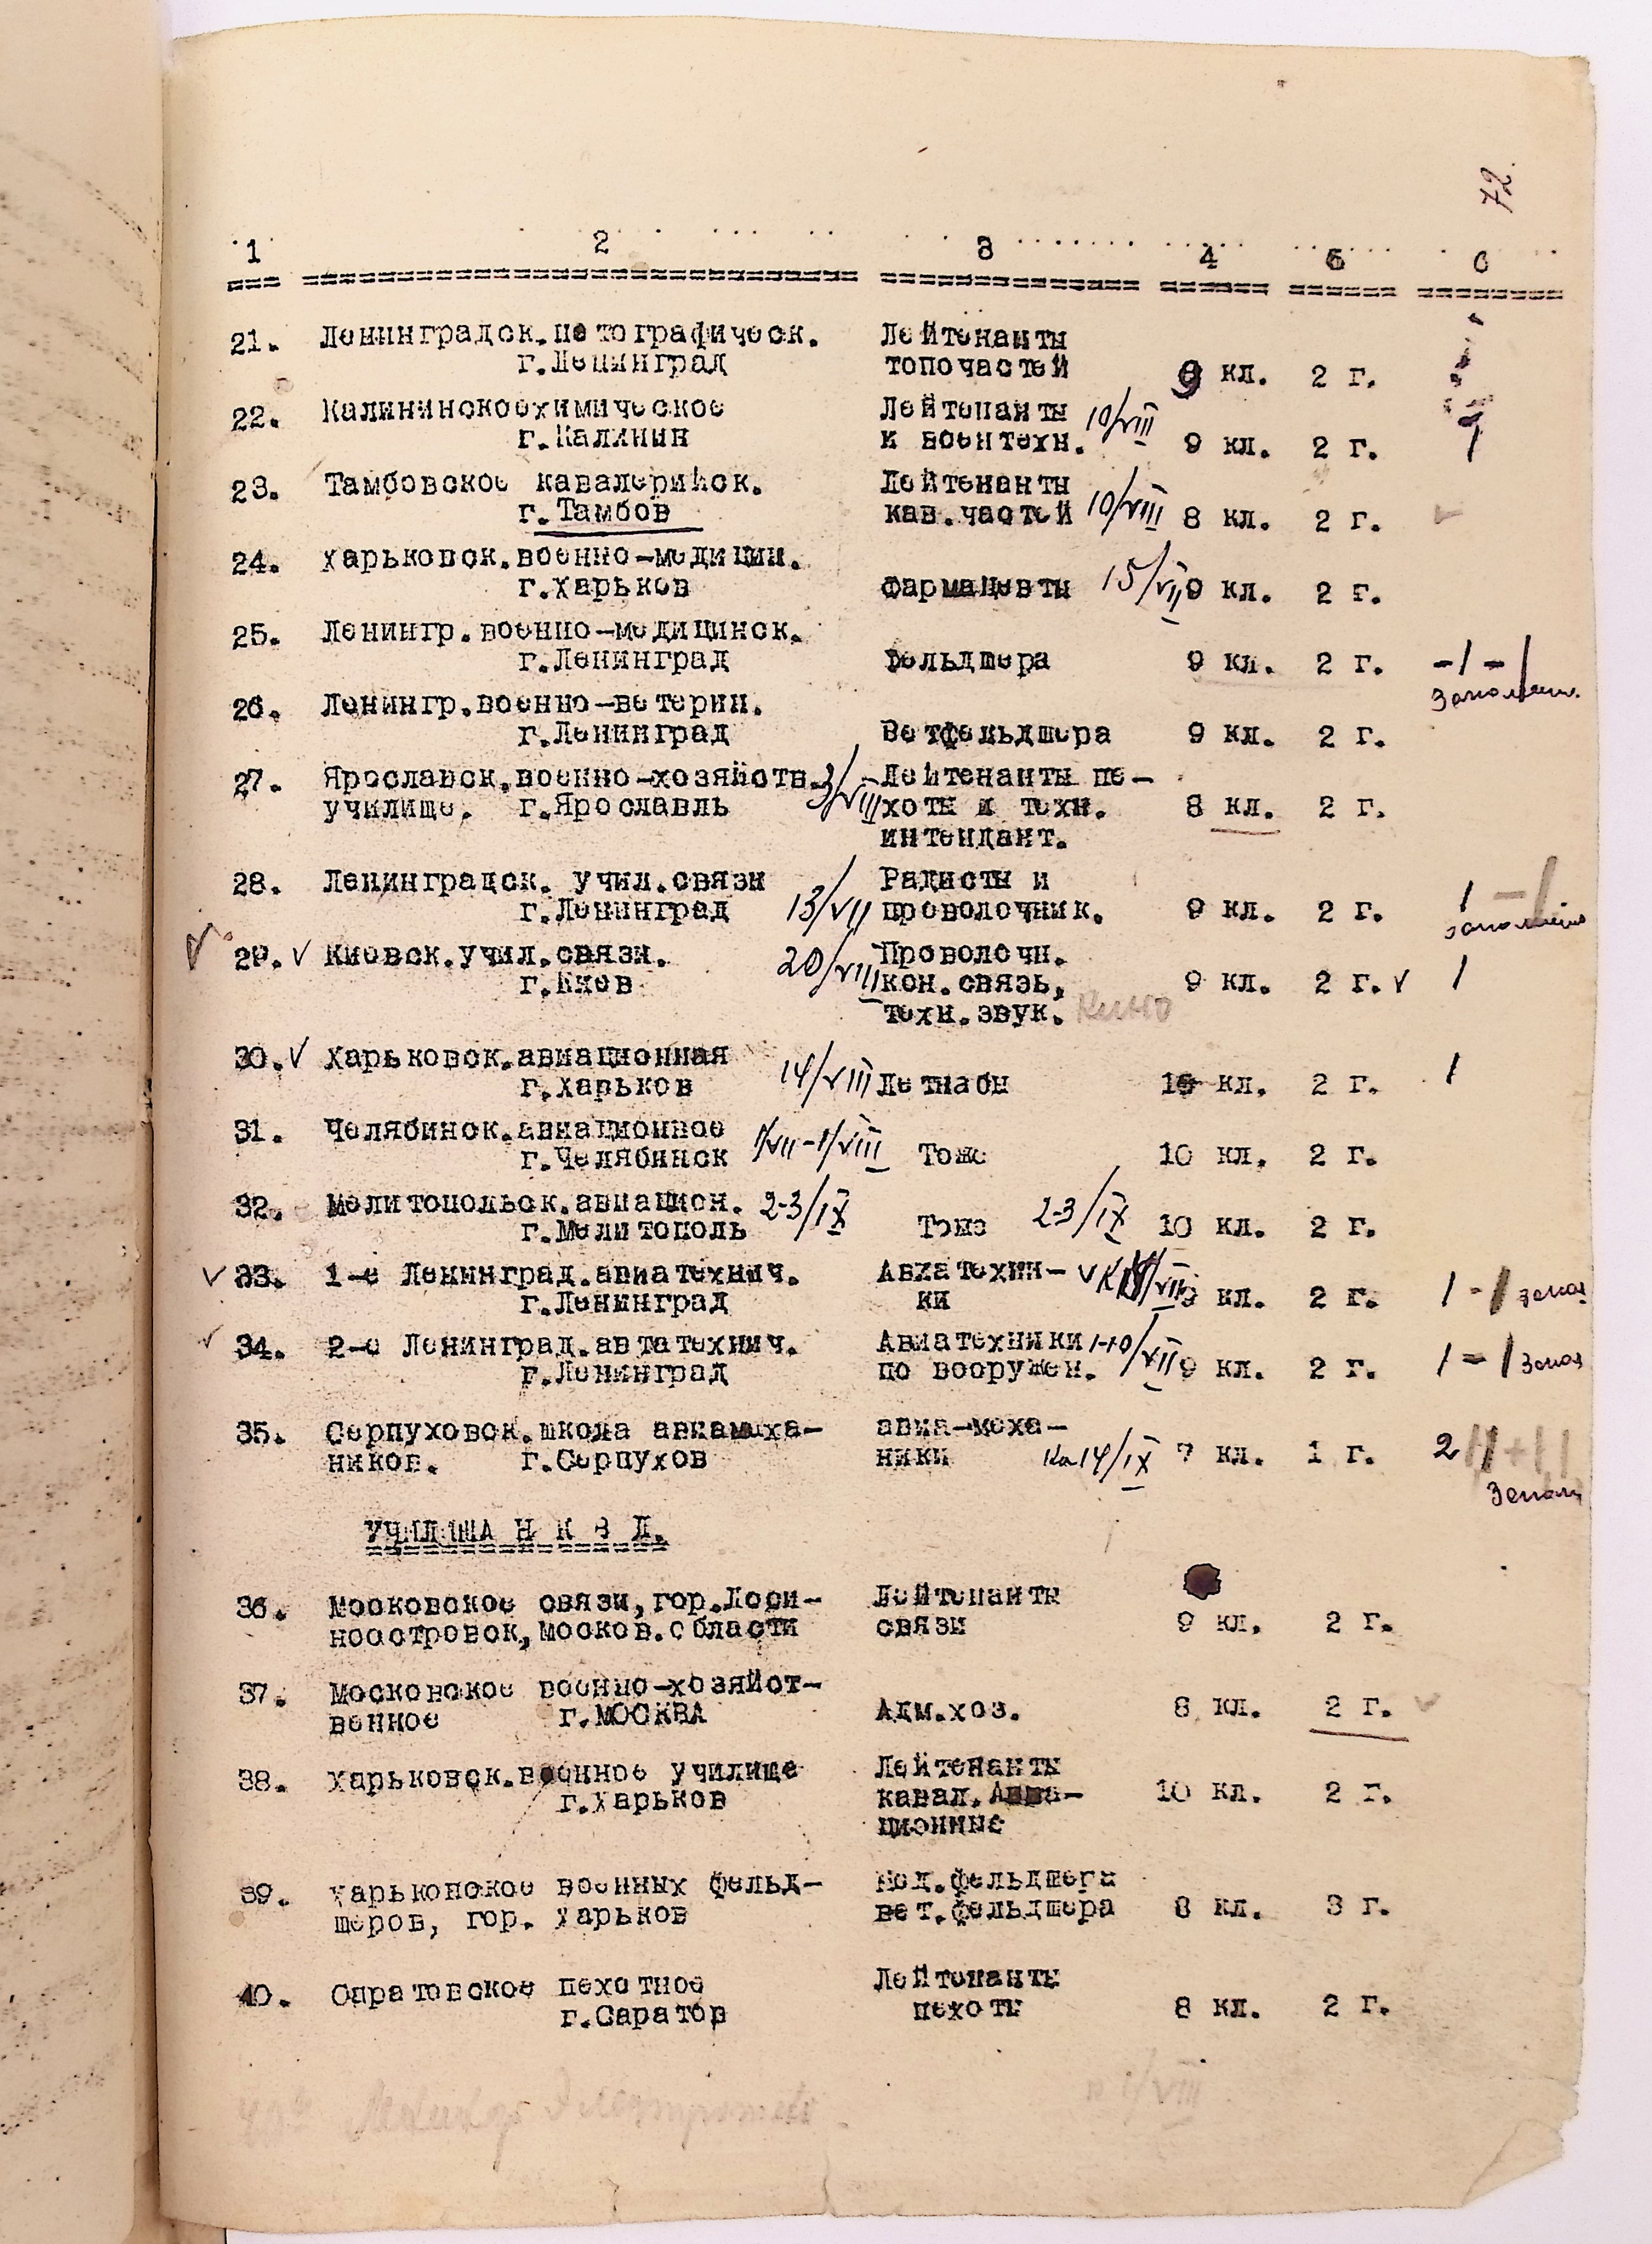 72.
1 2 3 4 5 6
21. Ленинградск.пстографическ. Лейтенанты
г.Ленинград топочастей 9 кл. 2 г.
22. Калининскоехимическое Лейтенанты 10/VIII
г.Калинин и воентехн. 9 кл. 2 г. 1
23. Тамбовское кавалерийск. Лейтенанты
г.Тамбов кав.частей 10/VIII 8 кл. 2 г.
24. Харьковск.военно-медицин.
г.Харьков Фармацевты 15/VII 9 кл. 2 г.
25. Ленингр.военно-медицинск.
г.Ленинград Фельдшера 9 кл. 2 г. -1-1
26. Ленингр.военно-ветерин.
г.Ленинград Ветфельдшера 9 кл. 2 г.
27. Ярославск.военно-хозяйств. 3/VIII Лейтенанты пе-
училище. г.Ярославль хоты и техн. 8 кл. 2 г.
интендант.
28. Ленинградск. учил.связи Радисты и
г.Ленинград 13/VII проволочник. 9 кл. 2 г. 1 - 1
29. Киевск.учил.связи. Проволочн.
г.Киев 20/VIII кон.связь, 9 кл. 2 г. 1
техн.звук. кино
30. Харьковск.авиационная
г.Харьков 14/VIII Летнабы 10 кл. 2 г. 1
31. Челябинск.авиационное
г.Челябинск 1/VII-1/VIII Тоже 10 кл. 2 г.
32. Мелитопольск.авиацион. 2-3/IX
г.Мелитополь Тоже 2-3/IX 10 кл. 2 г.
33. 1-е Ленинград.авиатехнич. Авиатехни-
г.Ленинград ки 9 кл. 2 г. 1 - 1
34. 2-е Ленинград.автатехнич. Авиатехники 1-10/VII
г.Ленинград по вооружен. 9 кл. 2 г. 1 = 1
35. Серпуховск.школа авиамеха- авиа-меха-
ников. г.Серпухов ники на 14/IX 7 кл. 1 г. 2
УЧИЛИЩА Н К В Д.
36. Московское связи,гор.Лоси- Лейтенанты
ноостровск,москов.области связи 9 кл. 2 г.
37. Московское военно-хозяйст-
венное г.МОСКВА Адм.хоз. 8 кл. 2 г.
38. Харьковск.военное училище Лейтенанты
г.Харьков кавал. Авиа- 10 кл. 2 г.
ционные
39. Харьковское военных фельд- мед.фельдшера
шеров, гор. Харьков вет.фельдшера 8 кл. 3 г.
40. Саратовское пехотное Лейтенанты
г.Саратов пехоты 8 кл. 2 г.